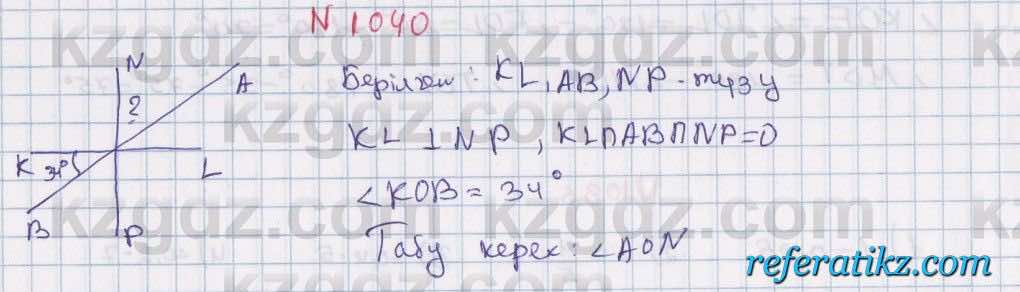 N 1040
N
A
?
K 34°
L
B
P
Берілген: KL, AB, NP - түзу
KL ⊥ NP, KL∩AB∩NP=O
∠KOB = 34°
Табу керек: ∠AON
kzgdz.com
referatikz.com